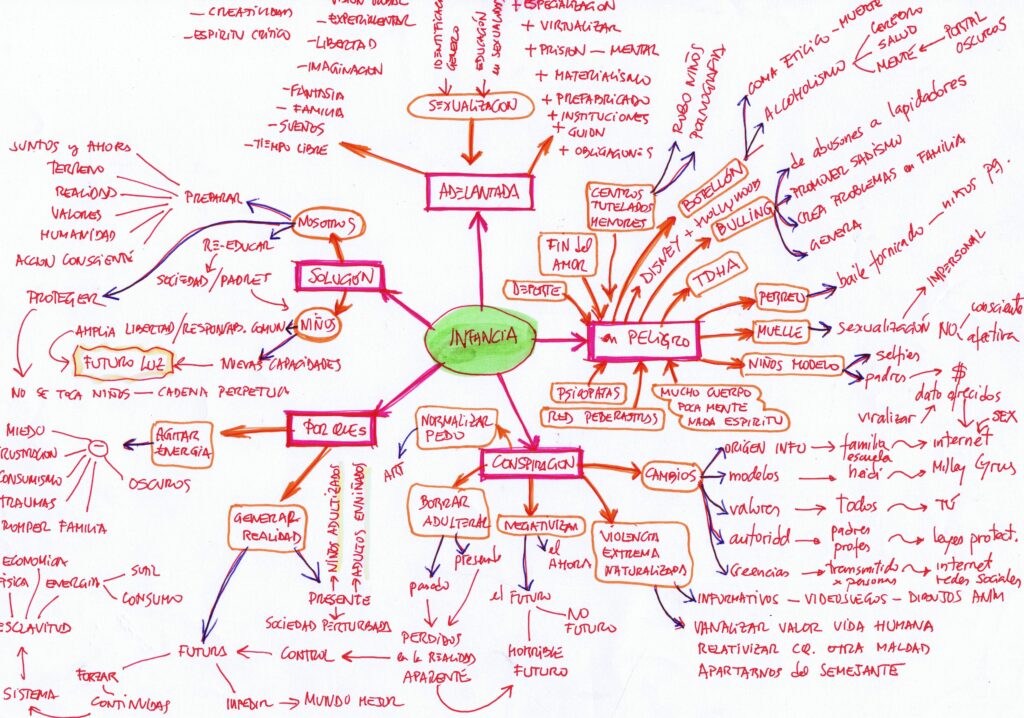 - CREATIVIDAD
- ESPIRITU CRÍTICO
- EXPERIMENTAR
- LIBERTAD
- IMAGINACION
- FANTASIA
- FAMILIA
- SUEÑOS
- TIEMPO LIBRE
GENERO
EDUCACIÓN
en SEXUALIDAD
SEXUALIZACION
+ ESPECIALIZACION
+ VIRTUALIZAR
+ PRISION - MENTAL
+ MATERIALISMO
+ PREFABRICADO
+ INSTITUCIONES
+ GUION
+ OBLIGACIONES
ADELANTADA
JUNTOS y AHORA
TERRENO
REALIDAD
VALORES
HUMANIDAD
ACCION CONSCIENTE
PREPARAR
NOSOTROS
RE-EDUCAR
SOCIEDAD/PADRES
SOLUCIÓN
PROTEGER
NIÑOS
AMPLIA LIBERTAD/RESPONSAB. COMUN
FUTURO LUZ
NUEVAS CAPACIDADES
NO SE TOCA NIÑOS - CADENA PERPETUA
INFANCIA
ROBO NIÑOS
PORNOGRAFIA
CENTROS
TUTELADOS
MENORES
FIN del
AMOR
DEPORTE
BOTELLÓN
COMA ETILICO - MUERTE
ALCOHOLISMO
CEREBRO
SALUD
MENTE
PORTAL
OSCUROS
DISNEY + HOLLYWOOD
BULLING
de abusones a lapidadores
PROMOVER SADISMO
CREA PROBLEMAS en FAMILIA
GENERA
TDHA
en PELIGRO
PERREO
baile fornicado - niños pq.
MUELLE
sexualización
IMPERSONAL
NO
consciente
afectiva
NIÑOS MODELO
selfies
padres
$
dato ofrecidos
viralizar
SEX
PSICOPATAS
RED PEDERASTAS
MUCHO CUERPO
POCA MENTE
NADA ESPIRITU
POR QUES
AGITAR
ENERGIA
MIEDO
FRUSTRACION
CONSUMISMO
TRAUMAS
ROMPER FAMILIA
OSCUROS
GENERAR
REALIDAD
NIÑOS ADULTIZADOS
ADULTOS ENNIÑADOS
PRESENTE
SOCIEDAD PERTURBADA
FUTURA
CONTROL
ECONOMICA
FÍSICA
ENERGIA
SUTIL
CONSUMO
ESCLAVITUD
SISTEMA
FORZAR
CONTINUIDAD
IMPEDIR
MUNDO MEJOR
CONSPIRACION
NORMALIZAR
PEDO
ART
BORRAR
ADULTERAR
pasado
presente
PERDIDOS
en la REALIDAD
APARENTE
NEGATIVIZAR
el
AHORA
el FUTURO
NO
FUTURO
HORRIBLE
FUTURO
VIOLENCIA
EXTREMA
NATURALIZADA
INFORMATIVOS - VIDEOJUEGOS - DIBUJOS ANIM
VANALIZAR VALOR VIDA HUMANA
RELATIVIZAR CQ. OTRA MALDAD
APARTARNOS del SEMEJANTE
CAMBIOS
ORIGEN INFO
familia
escuela
internet
modelos
heidi
Milley Cyrus
valores
todos
TÚ
autoridd
padres
profes
leyes protect.
creencias
transmitido
x personas
internet
redes sociales